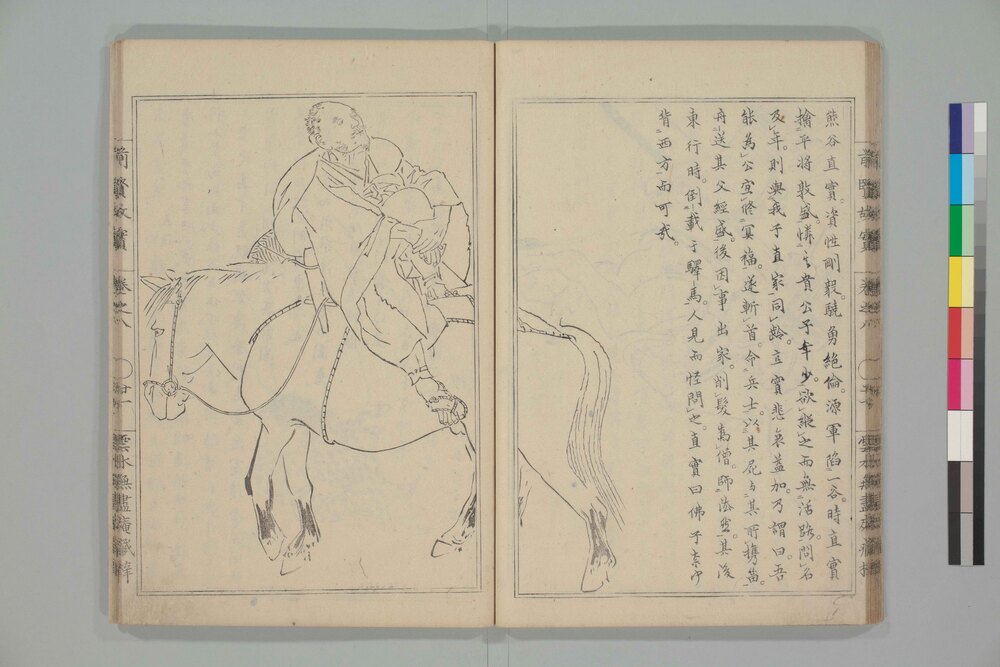 熊谷直實。資性剛毅。驍勇絶倫。源軍陷一谷。時直實
擒平將敦盛憐其貴公子年少。欲縱之而無活路。問名
及年。則與我子直家同齡。直實悲哀益加。乃謂曰。吾
能為公宜修冥福。遂斬首。令兵士。以其屍与其所携笛。
舟送其父經盛。後因事出家。削髮為僧。師法然。其後
東行時。倒載于驛馬。人見而怪問之。直實曰佛子
背西方而可哉。
前賢故實
卷之八
前賢故實
卷之八
雲水無盡庵藏梓